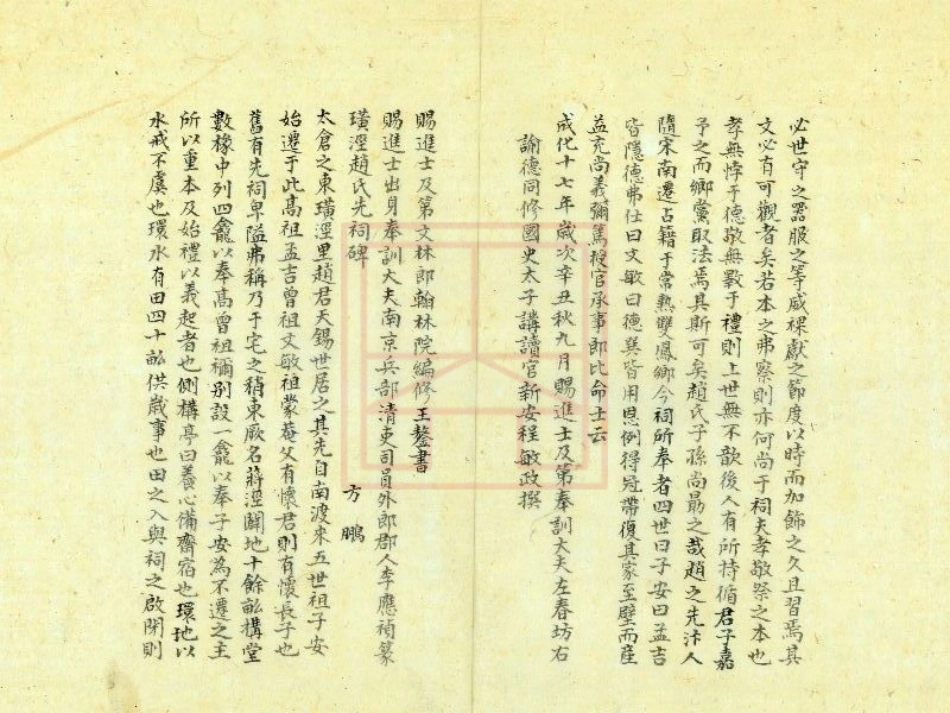 必世守之器服之等咸祼獻之節度以時而加飾之久且習焉其
文必有可觀者矣若本之弗察則亦何尚于祠夫孝敬祭之本也
孝無悖于德敬無斁于禮則上世無不歆後人有所持循君子嘉
予之而鄉黨取法焉其斯可矣趙氏子孫尚勗之哉趙之先汴人
隨宋南遷占籍于常熟雙鳳鄉今祠所奉者四世曰子安曰孟吉
皆隱德弗仕曰文敏曰德巽皆用恩例得冠帶復其家至壁而産
益充尚義彌篤授官承事郎比命士云
成化十七年歲次辛丑秋九月賜進士及第奉訓大夫左春坊右
諭德同修國史太子講讀官新安程敏政撰
賜進士及第文林郎翰林院編修王鏊書
賜進士出身奉訓大夫南京兵部清吏司員外郎郡人李應禎篆
璜涇趙氏先祠碑 方鵬
太倉之東璜涇里趙君天錫世居之其先自南渡來五世祖子安
始遷于此高祖孟吉曾祖文敏祖蒙菴父有懷君則有懷長子也
舊有先祠卑隘弗稱乃于宅之稍東厥名蔣涇闢地十餘畝構堂
數椽中列四龕以奉髙曾祖禰别設一龕以奉子安為不遷之主
所以重本及始禮以義起者也側構亭曰養心備齋宿也環地以
水戒不虞也環水有田四十畝供歲事也田之入與祠之啟閉則